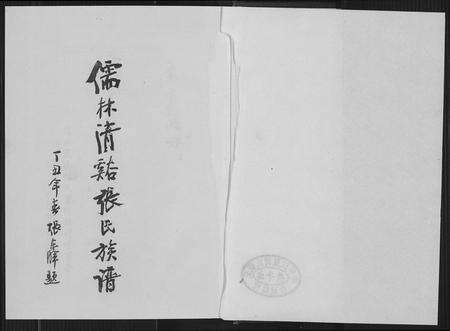 儒林清谿張氏族譜
丁丑年春張題